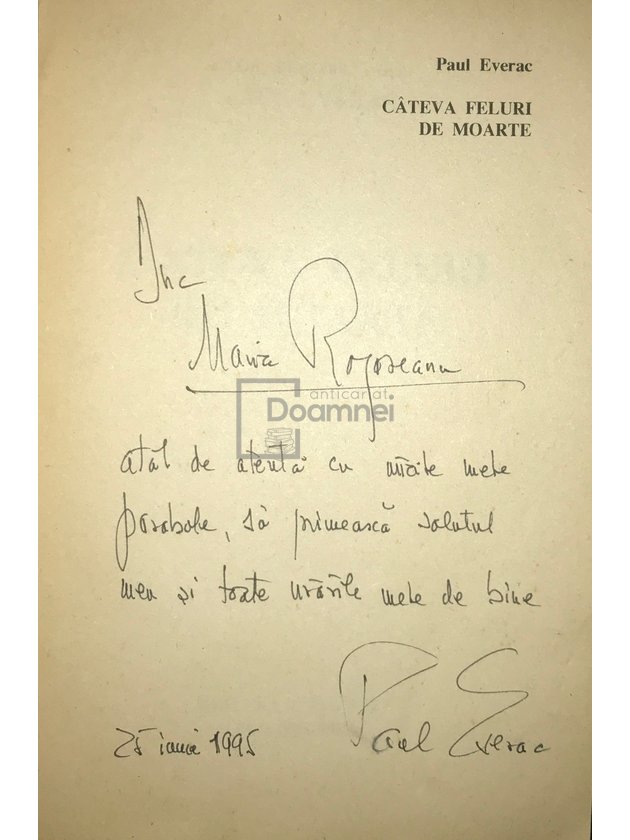 Paul Everac
CÂTEVA FELURI
DE MOARTE
Maria
anticariat
Doamnei
atât de atentă cu micile mele
parabole, să primească salutul
meu și toate urările mele de bine
Paul Everac
25 iunie 1995